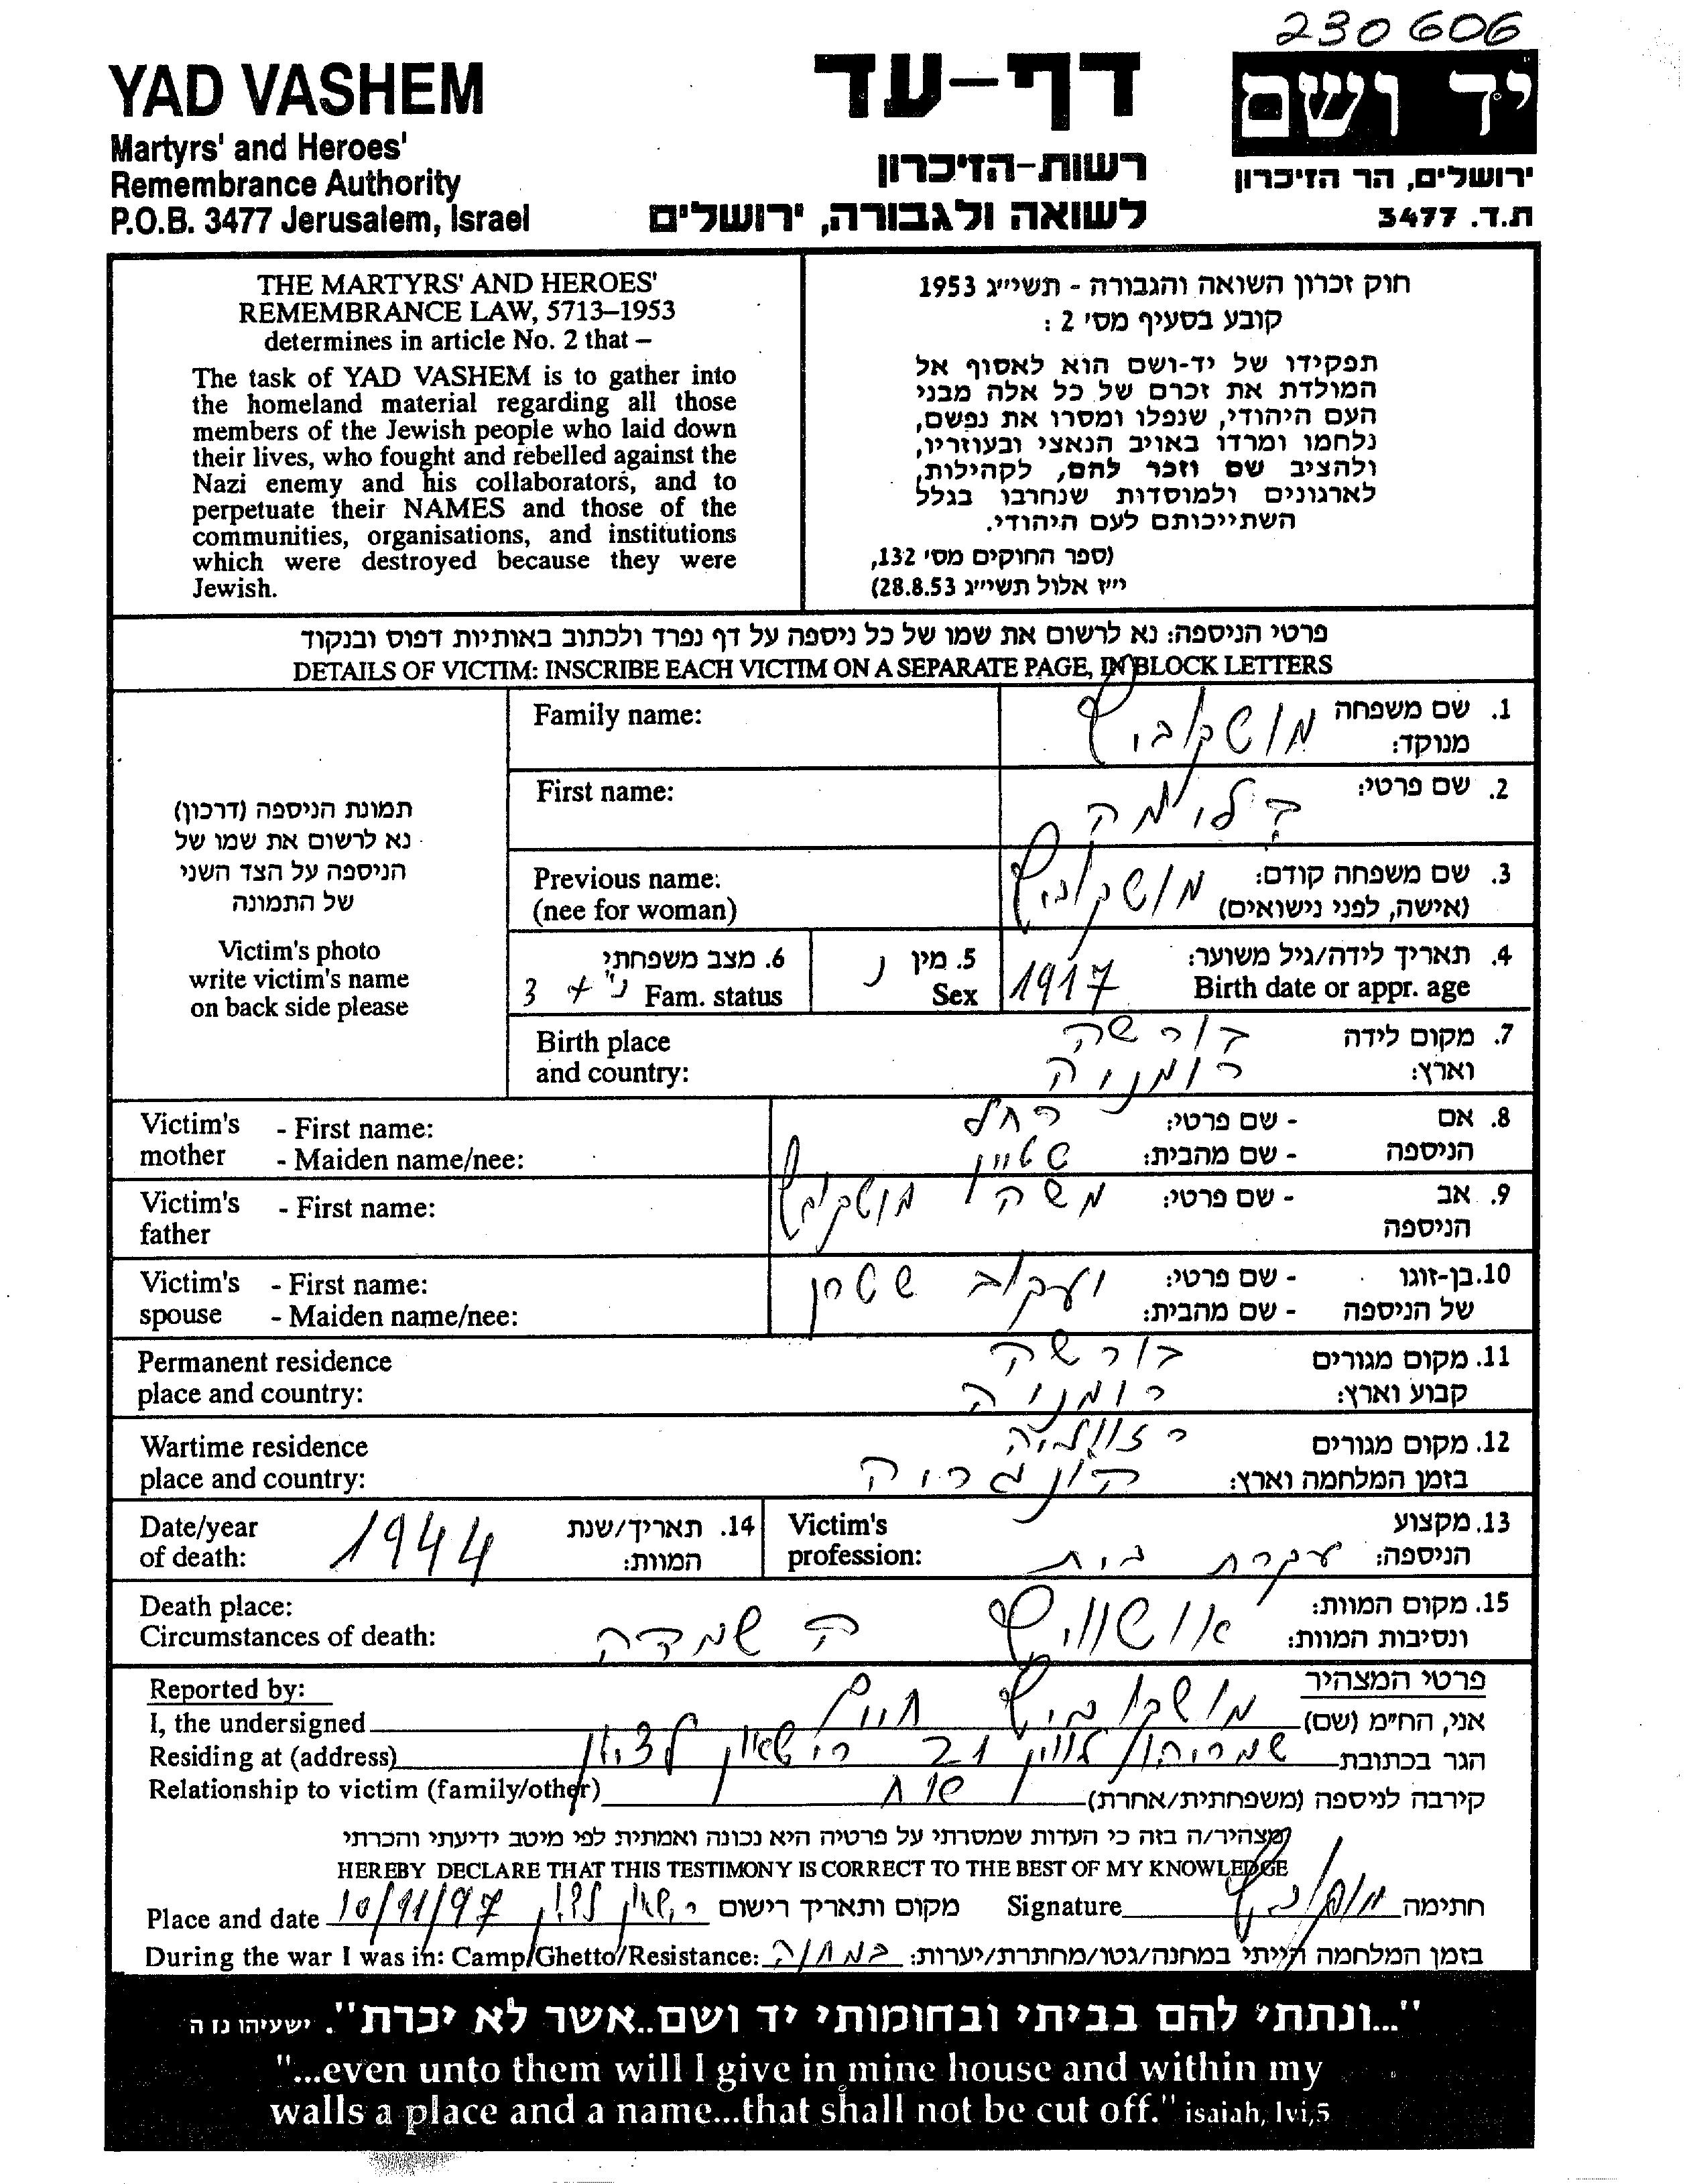 230 606
YAD VASHEM
Martyrs' and Heroes'
Remembrance Authority
P.O.B. 3477 Jerusalem, Israel
דף-עד
רשות-הזיכרון
לשואה ולגבורה, ירושלים
יד ושם
ירושלים, הר הזיכרון
ת.ד. 3477
THE MARTYRS' AND HEROES'
REMEMBRANCE LAW, 5713–1953
determines in article No. 2 that –
The task of YAD VASHEM is to gather into
the homeland material regarding all those
members of the Jewish people who laid down
their lives, who fought and rebelled against the
Nazi enemy and his collaborators, and to
perpetuate their NAMES and those of the
communities, organisations, and institutions
which were destroyed because they were
Jewish.
חוק זכרון השואה והגבורה - תשי״ג 1953
קובע בסעיף מס׳ 2 :
תפקידו של יד-ושם הוא לאסוף אל
המולדת את זכרם של כל אלה מבני
העם היהודי, שנפלו ומסרו את נפשם,
נלחמו ומרדו באויב הנאצי ובעוזריו,
ולהציב שם וזכר להם, לקהילות,
לארגונים ולמוסדות שנחרבו בגלל
השתייכותם לעם היהודי.
(ספר החוקים מס׳ 132,
י״ז אלול תשי״ג 28.8.53)
פרטי הניספה: נא לרשום את שמו של כל ניספה על דף נפרד ולכתוב באותיות דפוס ובנקוד
DETAILS OF VICTIM: INSCRIBE EACH VICTIM ON A SEPARATE PAGE, IN BLOCK LETTERS
תמונת הניספה (דרכון)
נא לרשום את שמו של
הניספה על הצד השני
של התמונה
Victim's photo
write victim's name
on back side please
Family name: מושקוביץ 1. שם משפחה
מנוקד:
First name: 2. שם פרטי:
Previous name: מושקוביץ 3. שם משפחה קודם:
(nee for woman) (אישה, לפני נישואים)
4. תאריך לידה/גיל משוער: 1917
Birth date or appr. age
5. מין נ
Sex
6. מצב משפחתי נ" + 3
Fam. status
Birth place בורשה 7. מקום לידה
and country: רומניה וארץ:
Victim's - First name: רחל - שם פרטי: 8. אם
mother - Maiden name/nee: שטיין - שם מהבית: הניספה
Victim's - First name: משה מושקוביץ - שם פרטי: 9. אב
father הניספה
Victim's - First name: יעקוב שטרן - שם פרטי: 10. בן-זוגו
spouse - Maiden name/nee: - שם מהבית: של הניספה
Permanent residence בורשה 11. מקום מגורים
place and country: רומניה קבוע וארץ:
Wartime residence 12. מקום מגורים
place and country: הונגריה בזמן המלחמה וארץ:
Date/year 1944 14. תאריך/שנת
of death: המוות:
Victim's 13. מקצוע
profession: עקרת בית הניספה:
Death place: 15. מקום המוות:
Circumstances of death: אושוויץ השמדה ונסיבות המוות:
Reported by: פרטי המצהיר
I, the undersigned מושקוביץ חיים אני, הח״מ (שם)
Residing at (address) שמריהו לוין 21 ראשון לציון הגר בכתובת
Relationship to victim (family/other) אח קירבה לניספה (משפחתית/אחרת)
מצהיר/ה בזה כי העדות שמסרתי על פרטיה היא נכונה ואמתית לפי מיטב ידיעתי והכרתי
HEREBY DECLARE THAT THIS TESTIMONY IS CORRECT TO THE BEST OF MY KNOWLEDGE
Place and date 10/11/97 ראשון לציון מקום ותאריך רישום Signature מושקוביץ חתימה
During the war I was in: Camp/Ghetto/Resistance: במחנה בזמן המלחמה הייתי במחנה/גטו/מחתרת/יערות:
"...ונתתי להם בביתי ובחומותי יד ושם..אשר לא יכרת". ישעיהו נו ה
"...even unto them will I give in mine house and within my
walls a place and a name...that shall not be cut off." isaiah, lvi,5